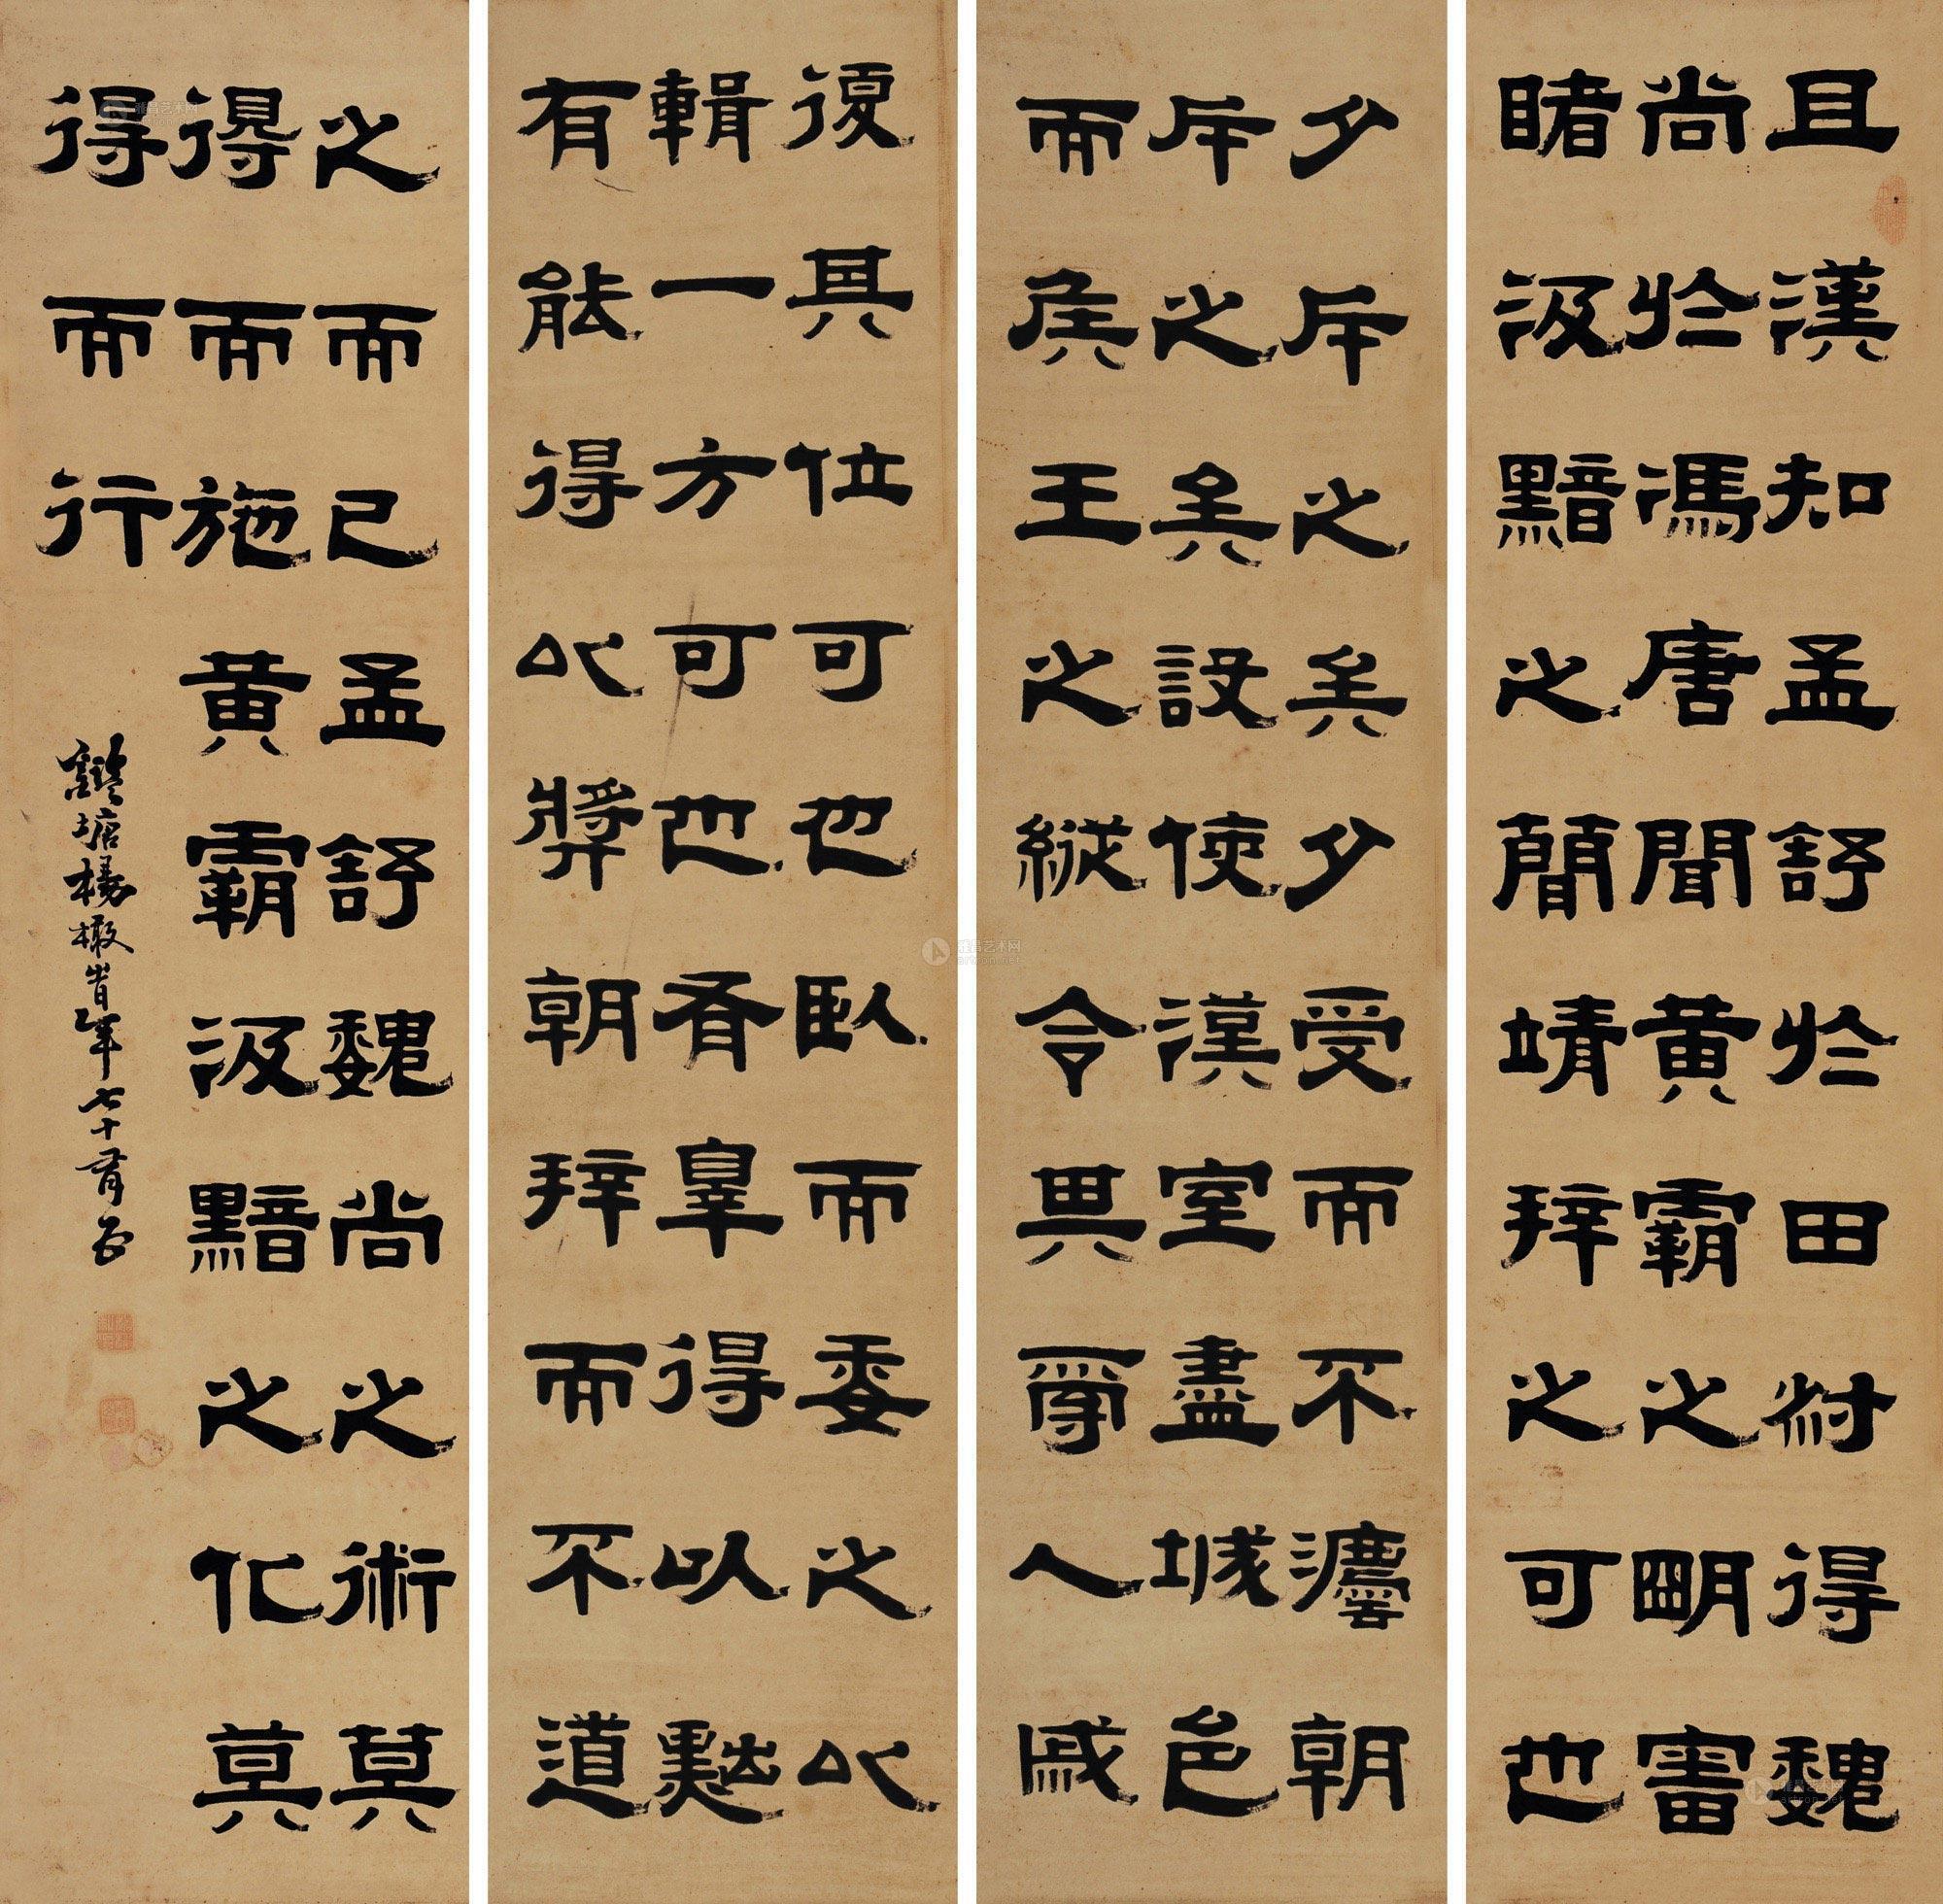 且漢知孟舒於田叔得魏
尚於馮唐聞黃霸之明審
睹汲黯之簡靖辭之可也
少斥之矣少受而不灋朝
斥之矣設使漢室盡城邑
而矦王之縱令畀爵人戚
復其位可也臥而委之以
輯一方可也有辠得以黜
有能得以獎朝拜而不道
之而已孟舒魏尚之術莫
得而施黃霸汲黯之化莫
得而行
龍塘楊橄時年七十有五